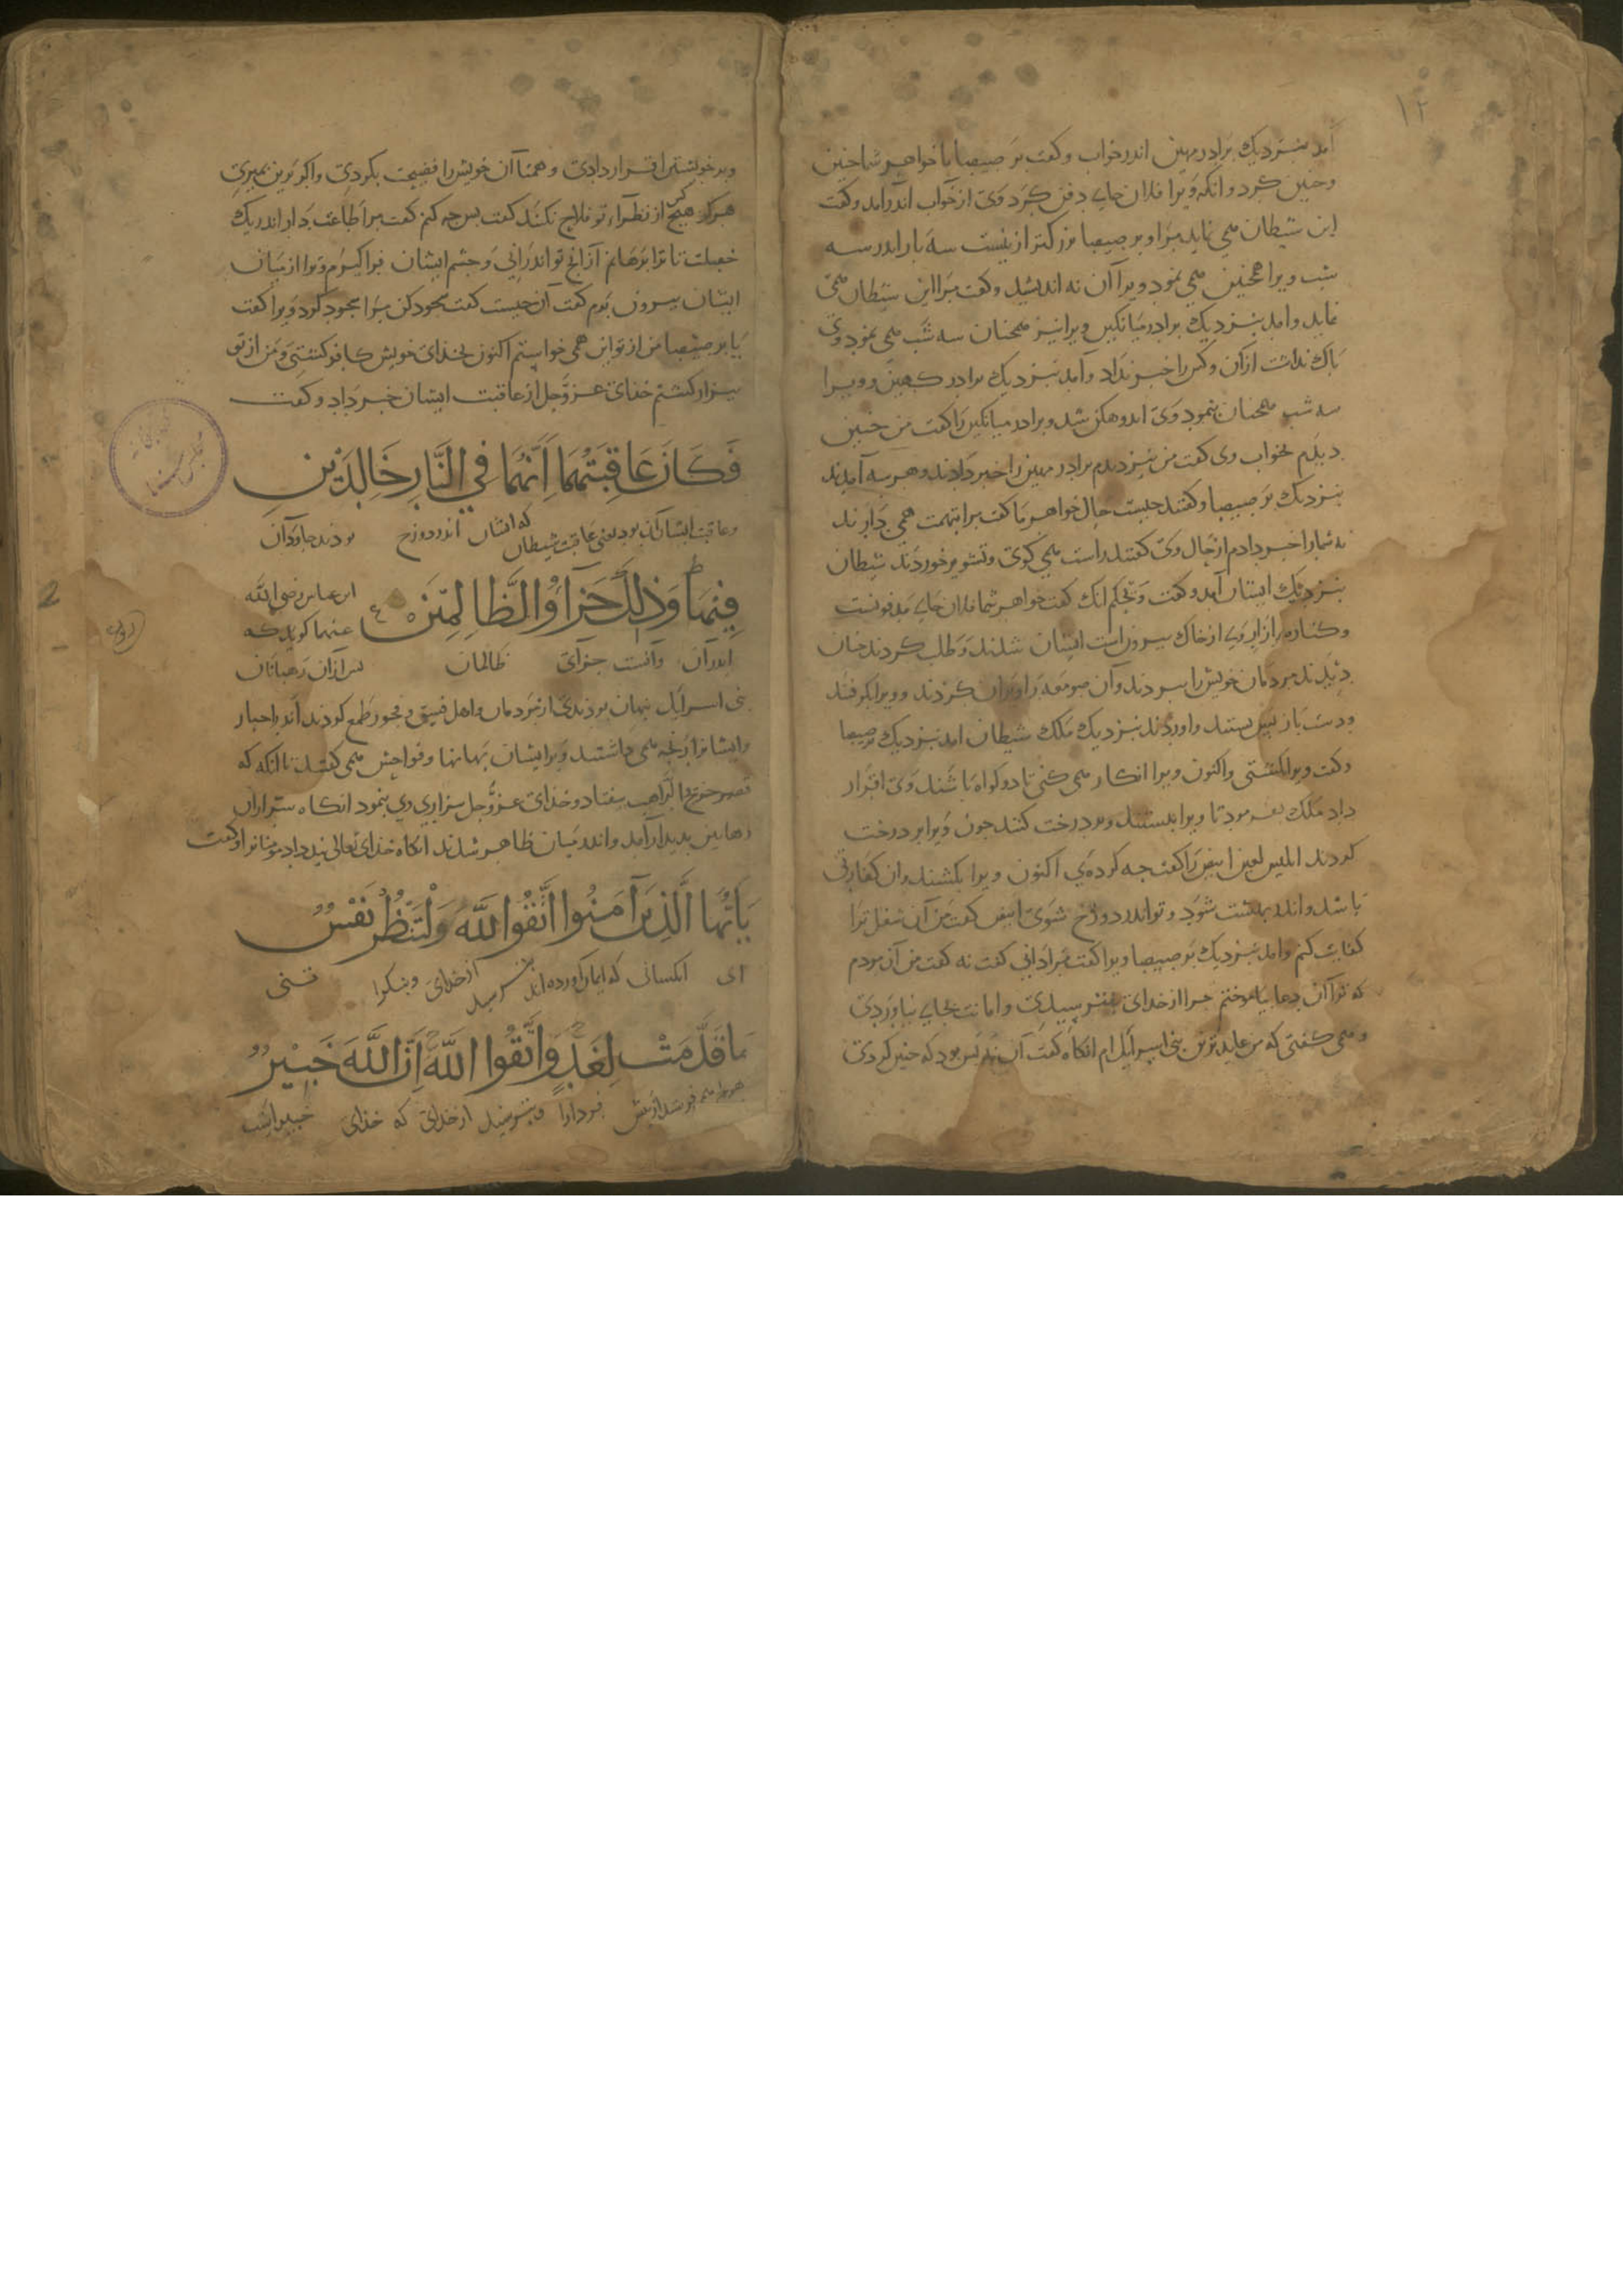 ۱۲
آمد بنزدیک برادر مهین اندر خواب و کفت برصیصا با خواهر شما چنین
و چنین کرد و انکه ویرا فلان جای دفن کرد وی از خواب اندر آمد و کفت
این شیطان می نماید مرا و برصیصا بزرکتر ازینست سه بار اندر سه
شب ویرا همچنین می نمود ویرا آن نه اندیشید و کفت مرا این شیطان می
نماید و امد بنزدیک برادر میانکین ویرا نیز همچنان سه شب می نمود وی
باک نداشت از آن و کس را خبر نداد و آمد بنزدیک برادر کهین و ویرا
سه شب همچنان بنمود وی اندوهکن شد و برادر میانکین را کفت من چنین
دیدم بخواب وی کفت من نیز دیدم برادر مهین را خبر دادند و هر سه آمدند
بنزدیک برصیصا و کفتند چیست حال خواهر ما کفت مرا بتهمت همی دارند
نه شما را خبر دادم از حال وی کفتند راست می کوی و تشویر خوردند شیطان
بنزدیک ایشان آمد و کفت ویحکم انک کفت خواهر شما فلان جای مدفونست
و کناره ازار وی از خاک بیرون است ایشان شدند و طلب کردند چنان
دیدند مردمان خویش را ببردند و آن صومعه را ویران کردند و ویرا بکرفتند
و دست باز پس بستند و آوردند بنزدیک ملک شیطان امد بنزدیک برصیصا
و کفت ویرا بکشتی و اکنون ویرا انکار می کنی تا دو کواه باشند وی اقرار
داد ملک بفرمود تا ویرا ببستند و بر درخت کنند چون ویرا بر درخت
کردند ابلیس لعین ابیض را کفت چه کرده‌ی اکنون ویرا بکشند و ان کفارتی
باشد و اندر بهشت شود و تو اندر دوزخ شوی ابیض کفت من آن شغل ترا
کفایت کنم و امد بنزدیک برصیصا ویرا کفت مرا دانی کفت نه کفت من آن مردم
که ترا آن دعا بیاموختم چرا از خدای بنترسیدی و امانت بجای نیاوردی
و می کفتی که من عابدترین بنی اسرایل ام انکاه کفت آن نه بس بود که چنین کردی
و بر خویشتن اقرار دادی و همتاآن خویش را فضیحت بکردی و اکر برین بمیری
هرکز هیچ کس از نظراء تو فلاح نکند کفت بس چه کنم کفت مرا طاعت دار اندر یک
خصلت تا ترا برهانم از آنچ تو اندرانی و چشم ایشان فراکیرم و ترا از میان
ایشان بیرون برم کفت آن چیست کفت سجود کن مرا سجود کرد ویرا کفت
یا برصیصا من از تو این همی خواستم اکنون بخدای خویش کافر کشتی و من از تو
بیزار کشتم خدای عز و جل از عاقبت ایشان خبر داد و کفت
فَكَانَ عَاقِبَتَهُمَا أَنَّهُمَا فِي النَّارِ خَالِدَيْنِ
و عاقبت ایشان آن بود یعنی عاقبت شیطان که ایشان اندر دوزخ بودند جاودان
فِيهَا وَذَلِكَ جَزَاؤُا الظَّالِمِينَ ابن عباس رضی الله
عنهما کوید که
اندران و آنست جزای ظالمان پس از آن رهبانان
بنی اسرایل پنهان بودندی از مردمان و اهل فسق و فجور طمع کردند اندر احبار
و ایشانرا رنجه می داشتند و بر ایشان بهانها و فواحش می کفتند تا آنکه که
قصه جریج الراهب بیفتاد و خدای عز و جل بیزاری وی بنمود انکاه
رهابین بدیدار آمد و اندر میان ظاهر شدند انکاه خدای تعالی پند داد مومنانرا و کفت
يَا أَيُّهَا الَّذِينَ آمَنُوا اتَّقُوا اللَّهَ وَلْتَنْظُرْ نَفْسٌ
ای انکسانی که ایمان آورده اند بترسید از خدای و بنکرا تنی
مَا قَدَّمَتْ لِغَدٍ وَاتَّقُوا اللَّهَ إِنَّ اللَّهَ خَبِيرٌ
فردا را و بترسید از خدای که خدای خبیر است
2